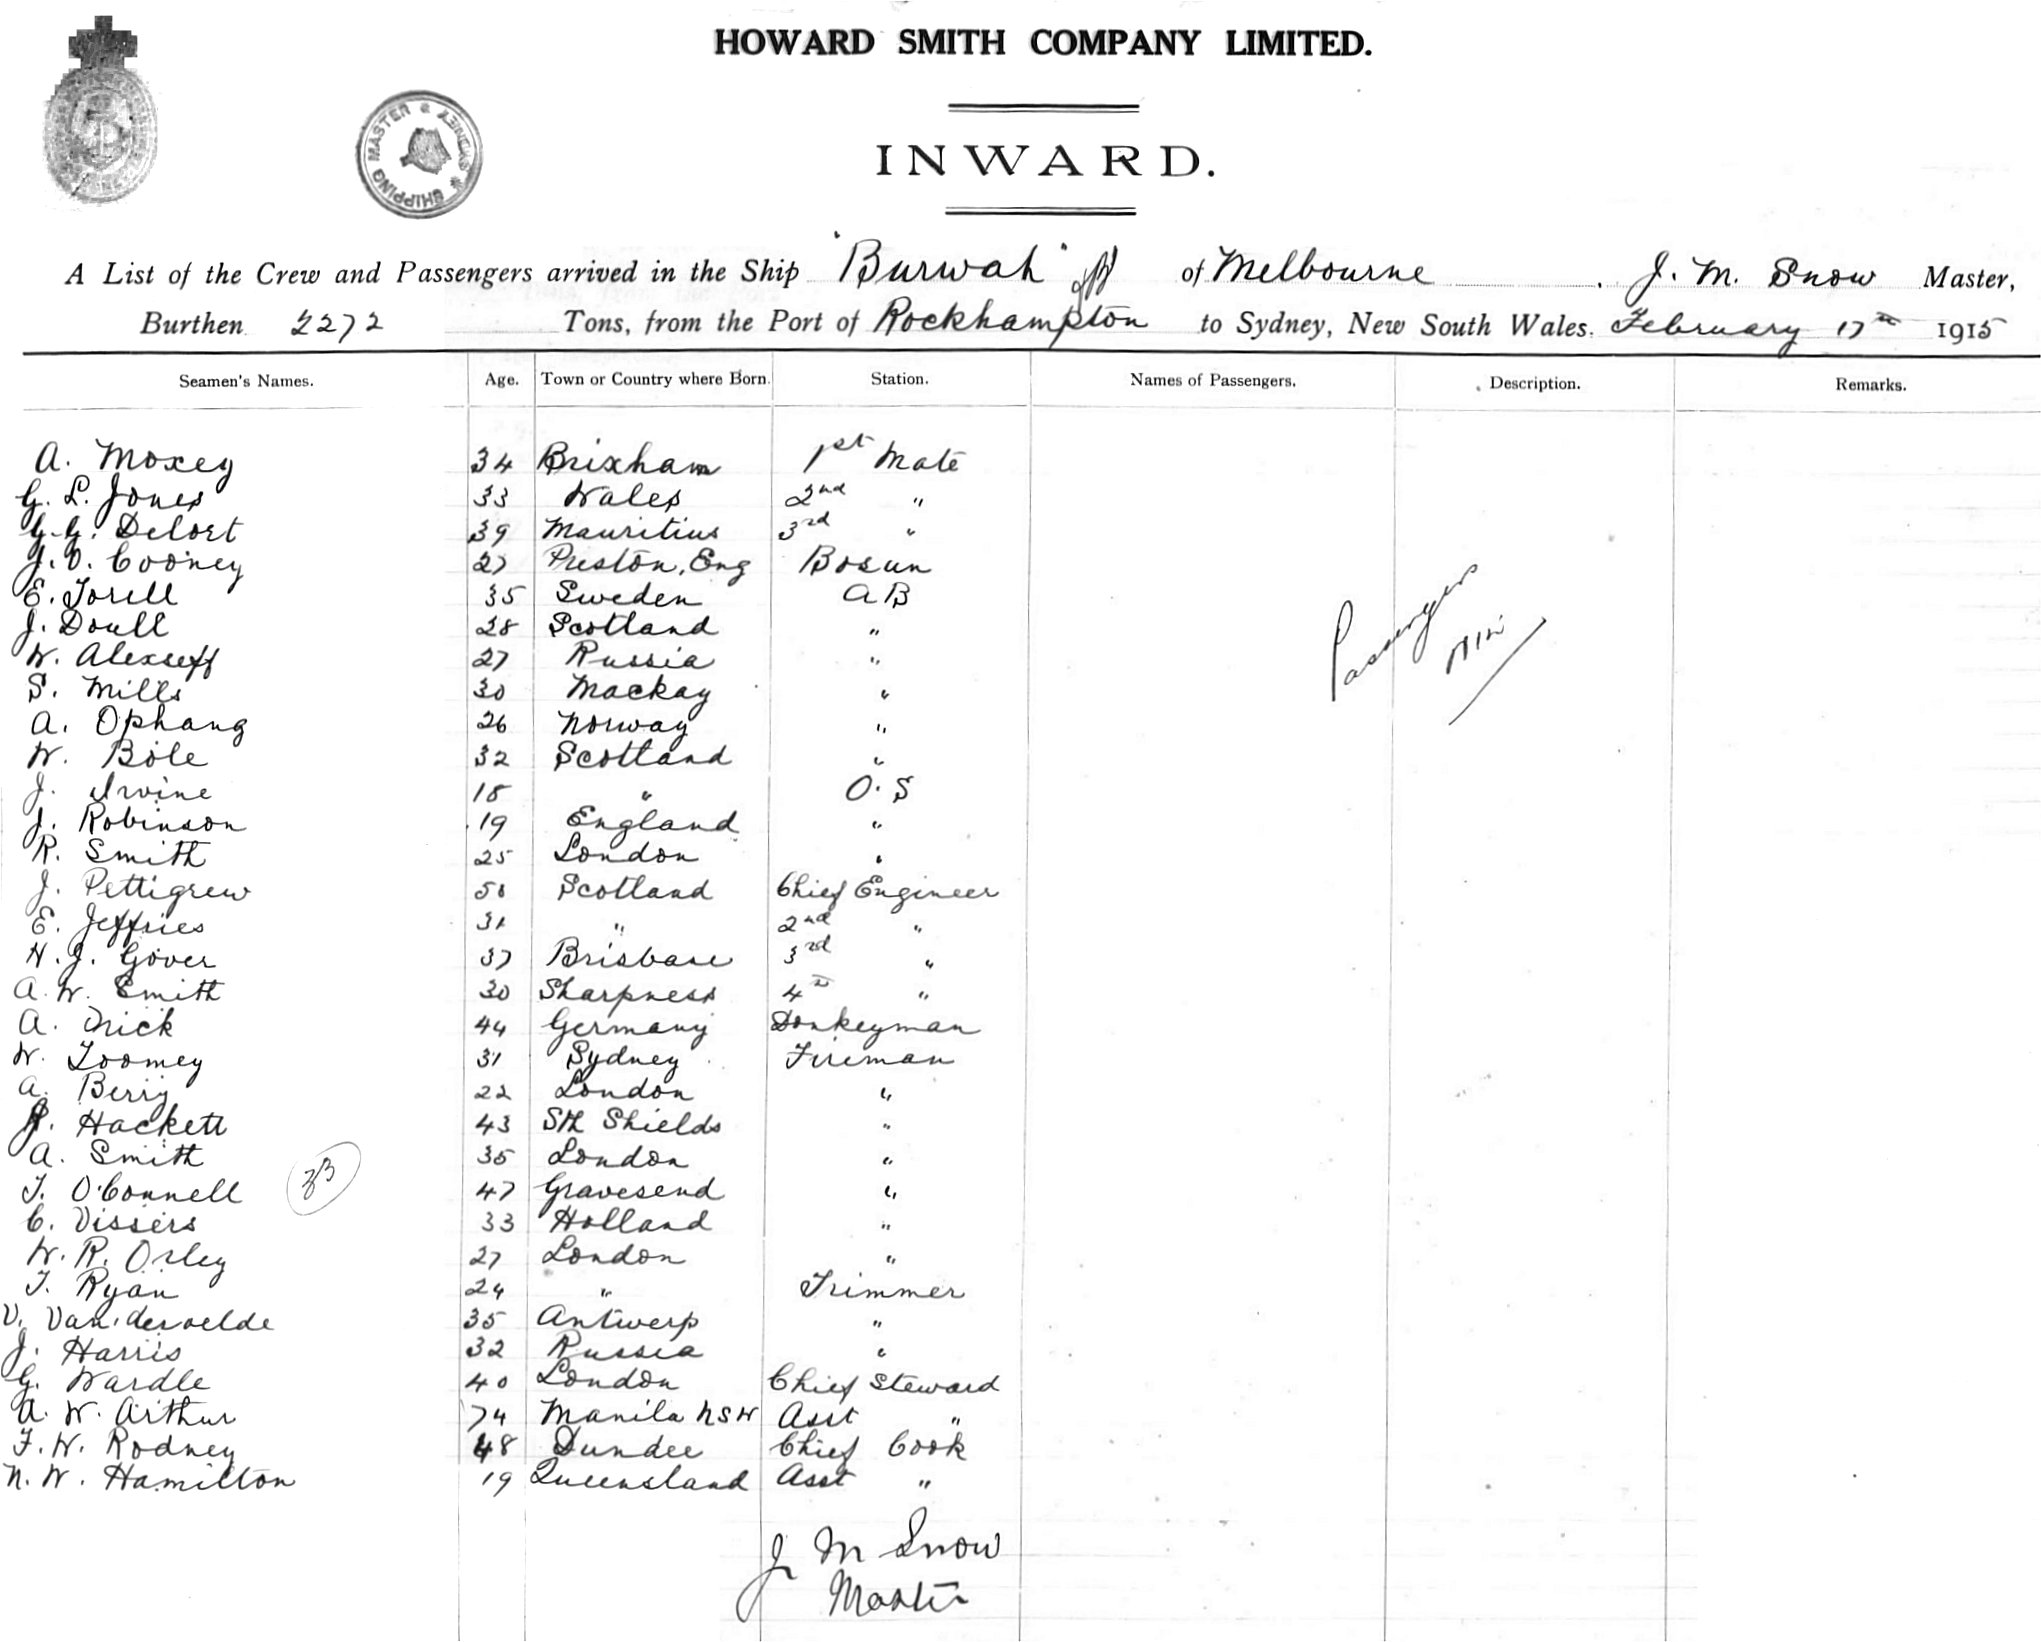 HOWARD SMITH COMPANY LIMITED.
SHIPPING MASTER * SYDNEY *
INWARD.
A List of the Crew and Passengers arrived in the Ship "Burwah" of Melbourne. J. M. Snow Master,
Burthen 2272 Tons, from the Port of Rockhampton to Sydney, New South Wales. February 17th 1915
Seamen's Names. Age. Town or Country where Born. Station. Names of Passengers. Description. Remarks.
A. Moxey 34 Brixham 1st Mate
G. L. Jones 33 Wales 2nd "
G. G. Delort 39 Mauritius 3rd "
J. O. Cooney 27 Preston, Eng Bosun
E. Torell 35 Sweden A B
J. Doull 28 Scotland "
W. Alexseff 27 Russia "
S. Mills 30 Mackay "
A. Ophang 26 Norway "
W. Bole 32 Scotland "
J. Irvine 18 " O. S
J. Robinson 19 England "
R. Smith 25 London "
J. Pettigrew 50 Scotland Chief Engineer
E. Jeffries 31 " 2nd "
H. J. Gover 37 Brisbane 3rd "
A. W. Smith 30 Sharpness 4th "
A. 44 Germany Donkeyman
W. Toomey 31 Sydney Fireman
A. Berry 22 London "
Hackett 43 Sth Shields "
A. Smith 35 London "
T. O'Connell 47 Gravesend "
C. Vissers 33 Holland "
W. R. Orley 27 London "
T. Ryan 24 " Trimmer
V. Van der velde 35 Antwerp "
J. Harris 32 Russia "
G. Wardle 40 London Chief Steward
A. W. Arthur 74 Manila NSW Asst "
F. W. Rodney 48 Dundee Chief Cook
N. W. Hamilton 19 Queensland Asst "
Passengers
Nil
33
J M Snow
Master